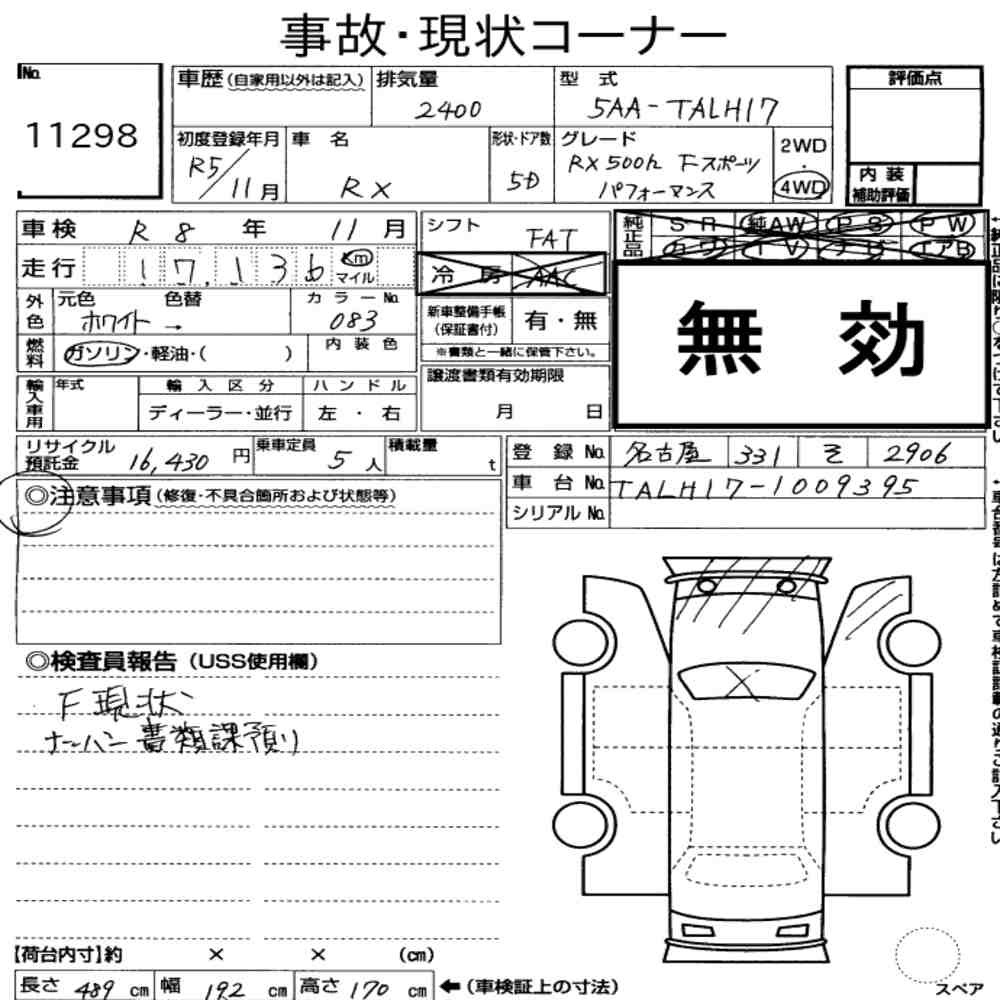 事故・現状コーナー
No.
11298
車歴(自家用以外は記入)
排気量
2400
型 式
5AA-TALH17
評価点
初度登録年月
R5/11月
車 名
RX
形状・ドア数
5D
グレード
RX500h Fスポーツ
パフォーマンス
2WD
・
4WD
内 装
補助評価
車検 R 8 年 11 月
シフト
FAT
純正品
SR 純AW PS PW
カワ TV ナビ エアB
走行 17,136 Km
マイル
冷 房 AAC
無 効
外色
元色 色替
ホワイト →
カラーNo.
083
新車整備手帳
(保証書付)
有・無
※書類と一緒に保管下さい。
燃料
ガソリン・軽油・( )
内 装 色
譲渡書類有効期限
月 日
輸入車用
年式
輸 入 区 分
ディーラー・並行
ハ ン ド ル
左 ・ 右
リサイクル
預託金 16,430 円
乗車定員
5 人
積載量
t
登 録 No. 名古屋 331 そ 2906
車 台 No. TALH17-1009395
シリアル No.
◎注意事項(修復・不具合箇所および状態等)
◎検査員報告(USS使用欄)
F 現状
ナンバン 書類課預り
【荷台内寸】約 × × (cm)
長さ 489 cm 幅 192 cm 高さ 170 cm ←(車検証上の寸法)
スペア